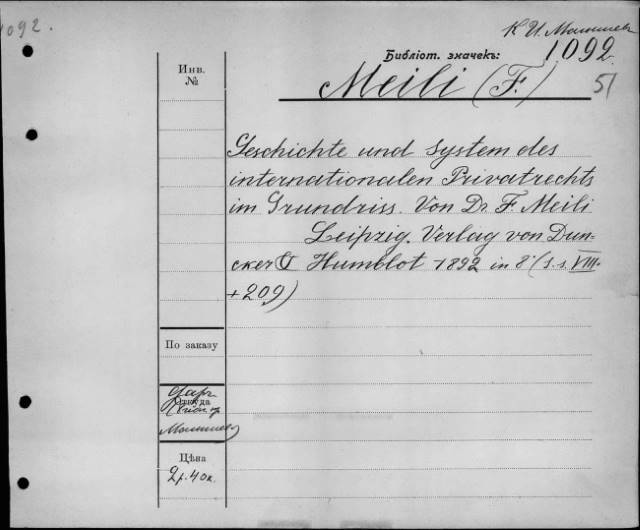 1092.
К И. Малышев
Библіот. значекъ: 1092.
Meili (F.) 51
Инв.
№
Geschichte und System des
internationalen Privatrechts
im Grundriss. Von Dr. F. Meili
Leipzig. Verlag von Dun-
cker & Humblot 1892 in 8° (S.s. VIII.
+ 209)
По заказу
Откуда
Малышев
Цѣна
2 р. 40 к.